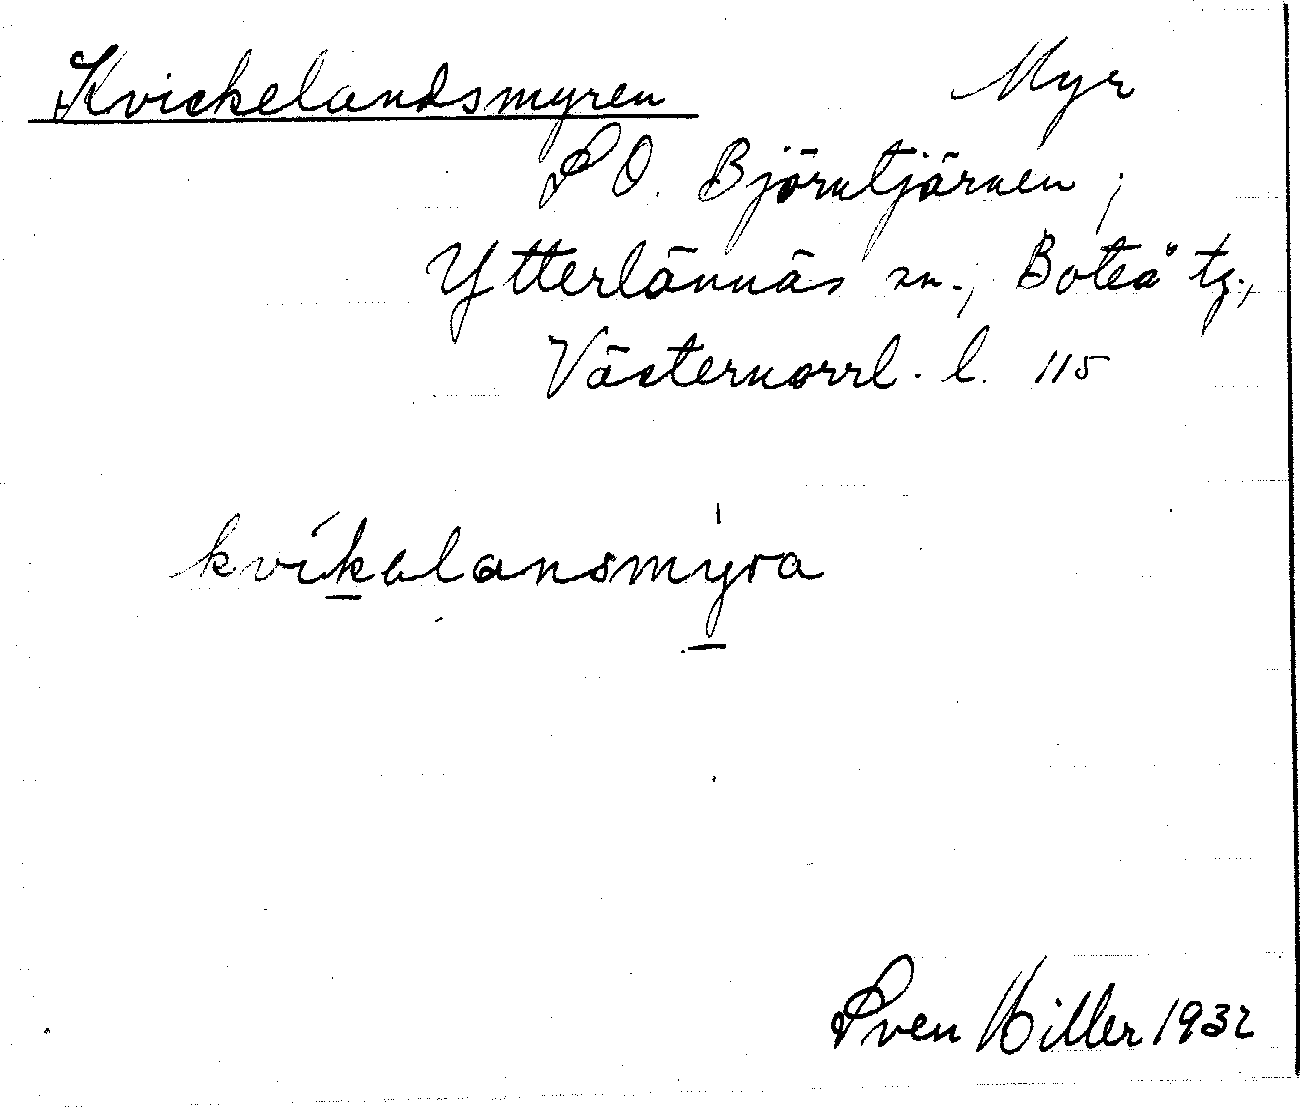 Kvickelandsmyren Myr
SO. Björntjärnen,
Ytterlännäs sn., Boteå tg.,
Västernorrl. l. 115
kvíkəlansmyra
Sven Hiller 1932